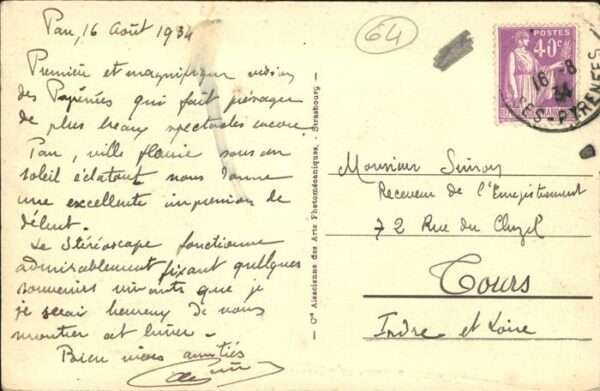 Pau, 16 Août 1934
Première et magnifique vision
des Pyrénées qui fait présager
de plus beaux spectacles encore.
Pau, ville fleurie sous un
soleil éclatant nous donne
une excellente impression de
début.
Le Stéréoscope fonctionne
admirablement fixant quelques
souvenirs vivants que je
je serai heureux de vous
montrer cet hiver.
Bien vives amitiés
64
Cie Alsacienne des Arts Photomécaniques, - Strasbourg
POSTES
40c
16-8
34
PYRENEES
Monsieur Simon
Receveur de l'Enregistrement
72 Rue du
Tours
Indre et Loire